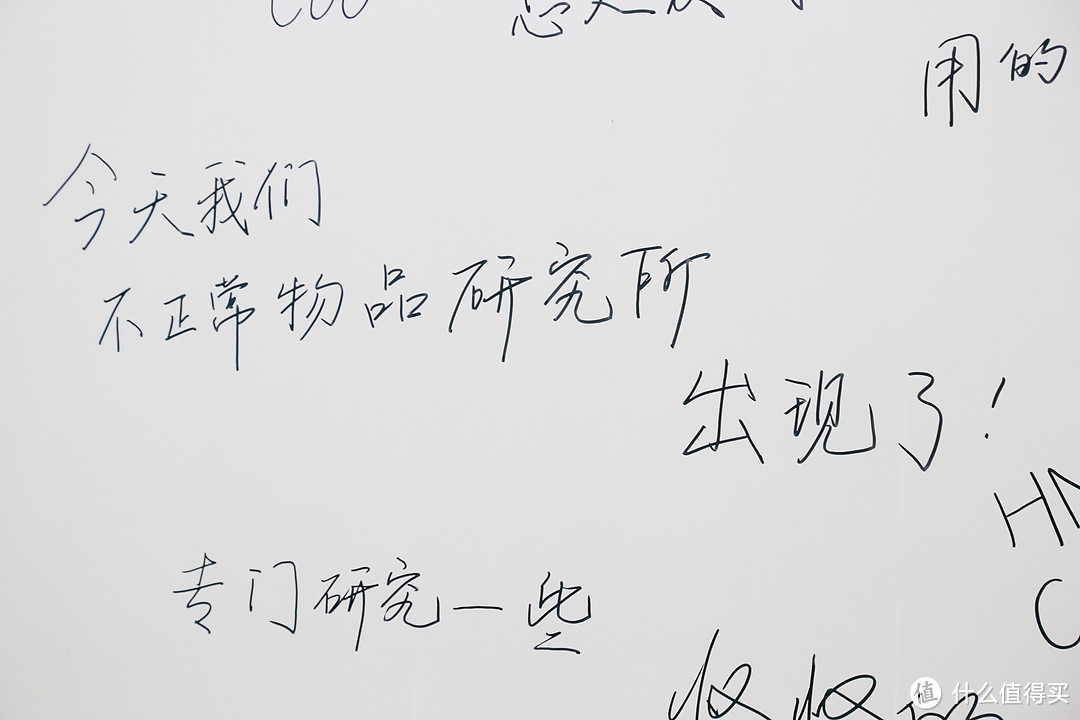 用的
今天我们
不正常物品研究所
出现了!
专门研究一些
值 什么值得买